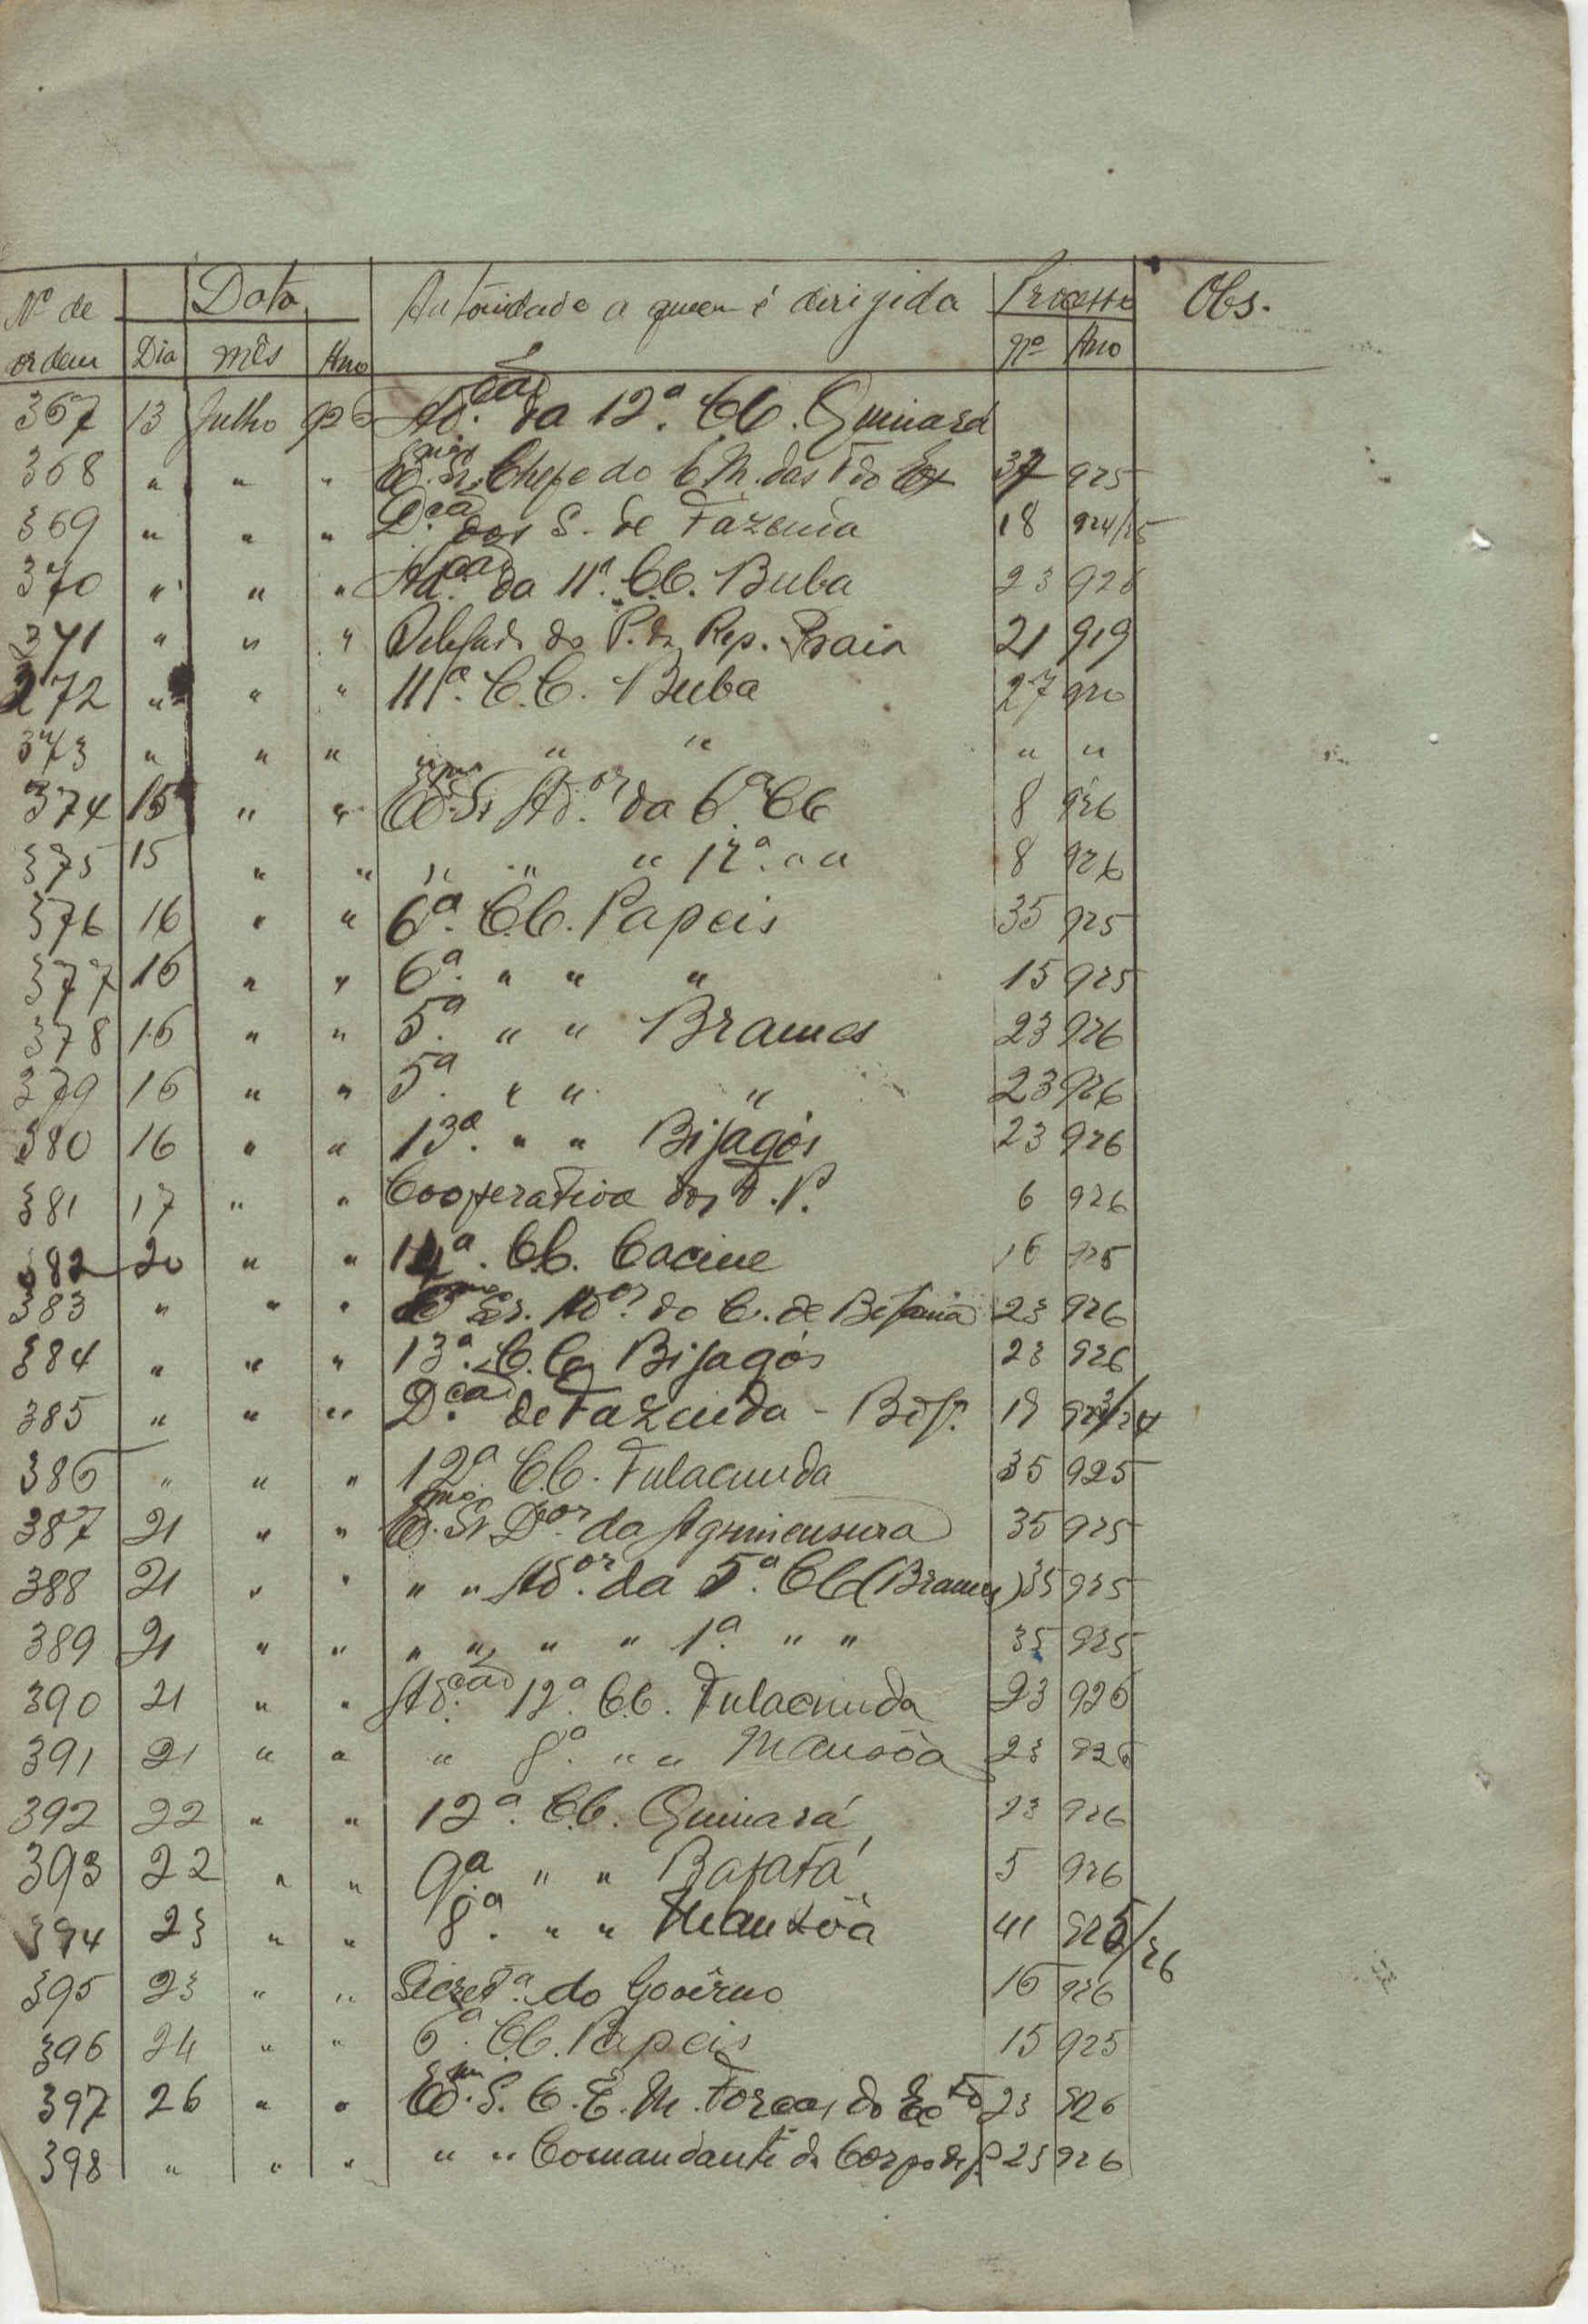 Nº de Data Autoridade a quem é dirigida Processo Obs.
ordem Dia mês Ano nº Ano
367 13 Julho 926 Ad.ção da 12ª. CC. Quinará
368 " " " Exmo. Sr. Chefe do E. M. das F do Ex 37 925
369 " " " D.cão dos S. de Fazenda 18 924/25
370 " " " Ad.cão da 11ª. C.C. Buba 23 926
371 " " " Delegado do P. da Rep. Praia 21 919
372 " " " 11ª. C.C. Buba 27 920
373 " " " " " " " "
374 15 " " Exmo. Sr Ad.or da 6ª. CC 8 926
375 15 " " " " " 12ª. " " 8 926
376 16 " " 6ª. C.C. Papeis 35 925
377 16 " " 6ª. " " " 15 925
378 16 " " 5ª. " " Brames 23 926
379 16 " " 5ª. " " " 23 926
380 16 " " 13ª. " " Bijagós 23 926
381 17 " " Cooperativa dos F. P. 6 926
382 20 " " 14ª. CC. Cacine 16 925
383 " " " Exmo Sr. Ad.or do C. de 23 926
384 " " " 13ª. C.C. Bijagós 23 926
385 " " " D.cão de Fazenda - 923/24
386 " " " 12ª. C.C. Fulacunda 35 925
387 21 " " Exmo. Sr D.or da Agrimensura 35 925
388 21 " " " " Ad.or da 5ª. CC (Brames) 35 925
389 21 " " " " " " 1ª. " " 35 925
390 21 " " Ad.cão 12ª. C.C. Fulacunda 23 926
391 21 " " " 8ª. " " Mansôa 23 926
392 22 " " 12ª. C.C. Quinará 23 926
393 22 " " 9ª. " " Bafatá 5 926
394 23 " " 8ª. " " Mansôa 41 925/26
395 23 " " Secretª. do Govêrno 16 926
396 24 " " 6ª. C.C. Papeis 15 925
397 26 " " Exmo. S. C. E. M. Forças do 23 926
398 " " " " " Comandante do Corpo de P 23 926